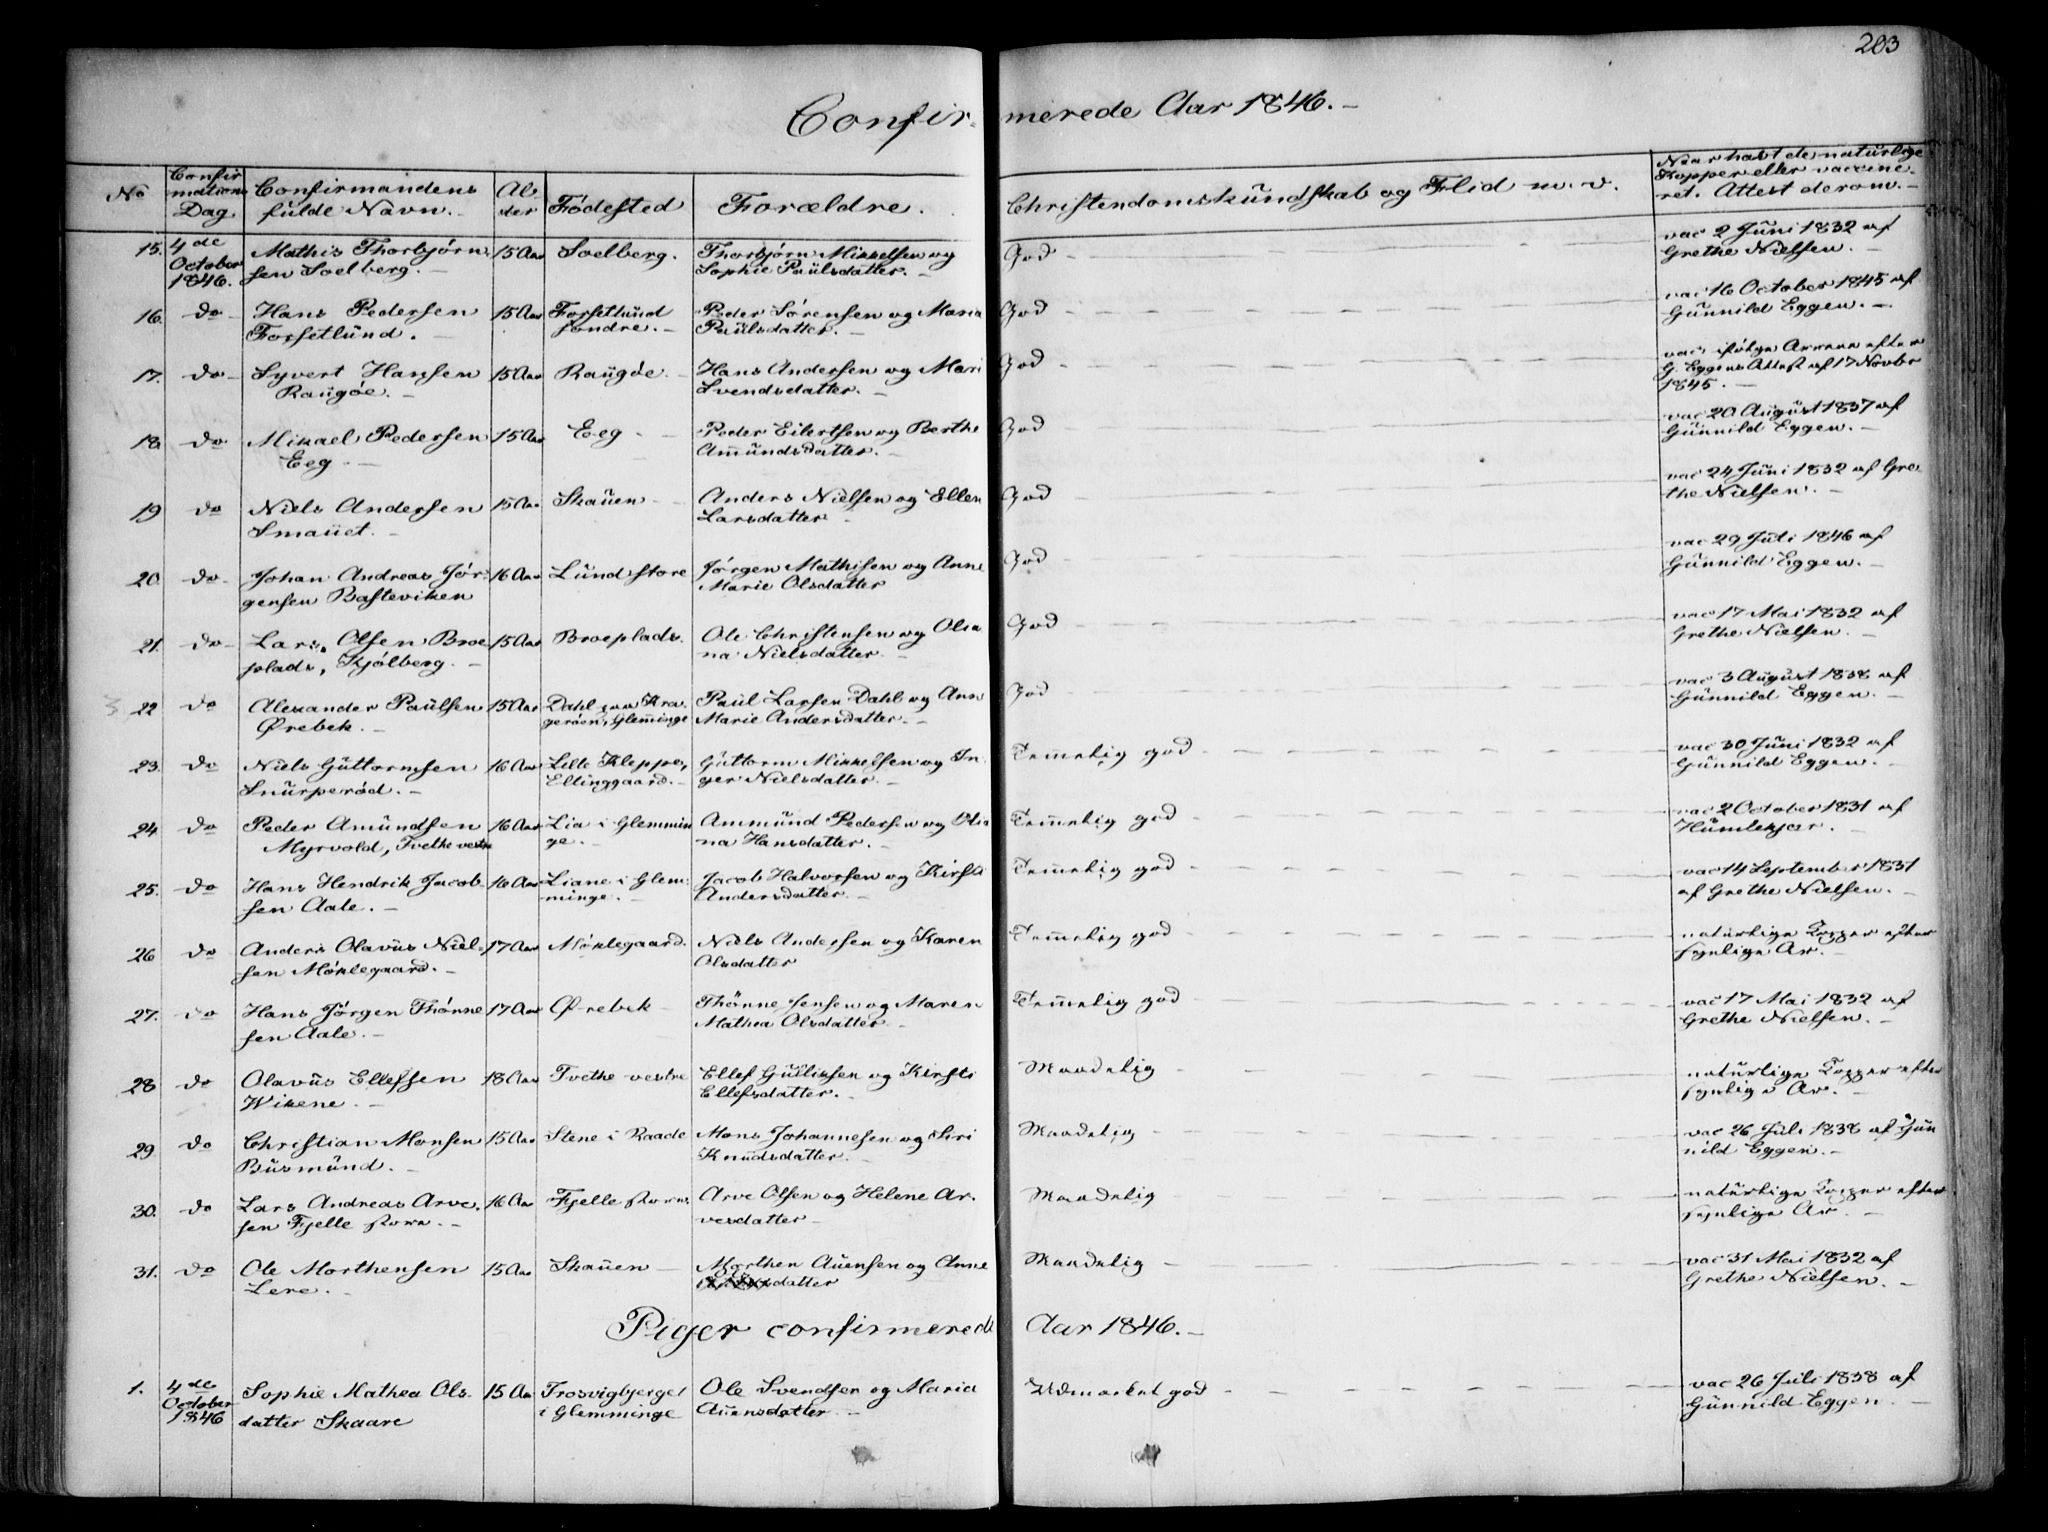 203
Confirmerede Aar 1846. –
No
Confirmations Dag.
Confirmandens fulde Navn. –
Alder
Fødested
Forældre.
Christendomskundskab og Flid m. v.
Naar havt de naturlige Kopper eller vaccineret. Attest derom. –
15. 4de Mathis Thorbjørn- 15 Aar Soelberg. Thorbjørn Mikkelsen og God – vac 2 Juni 1832 af
October 1846. sen Soelberg. – Sophie Paulsdatter. – Grethe Nielsen. –
16. do – Hans Pedersen 15 Aar Forsetlund Peder Sørensen og Maria God – vac 16 October 1845 af
Forsetlund. – søndre. – Paulsdatter. – Gunnild Eggen. –
17. do – Syvert Hansen 15 Aar Raugøe. – Hans Andersen og Mari God – vac. ifølge Arrene efter
Raugøe. – Svendsdatter. – G. Eggens Attest af 17 Novbr
1845. –
18. do Mikael Pedersen 15 Aar Eeg – Peder Eilertsen og Berthe God – vac 20 August 1837 af
Eeg – Amundsdatter. – Gunnild Eggen. –
19 do Niels Andersen 15 Aar Skauen – Anders Nielsen og Ellen God – vac 24 Juni 1832 af Gre
Smauet. – Larsdatter – the Nielsen. –
20. do – Johan Andreas Jør- 16 Aar Lund store Jørgen Mathisen og Anne God – vac 29 Juli 1846 af
gensen Basteviken Marie Olsdatter Gunnild Eggen. –
21. do – Lars Olsen Broe 15 Aar Broeplads. Ole Christensen og Olia God – vac 17 Mai 1832 af
plads, Kjølberg. – na Nielsdatter – Grethe Nielsen. –
22 do Alexander Paulsen 15 Aar Dahl paa Kra Paul Larsen Dahl og Ann God – vac 3 August 1838 af
Ørebek. – gerøen, Glemminge Marie Andersdatter. – Gunnild Eggen. –
23. do Niels Guttormsen 16 Aar Lille Kleppe, Guttorm Mikkelsen og In- Temmelig god – vac 30 Juni 1832 af
Snurperød. – Elinggaard. – ger Nielsdatter. – Gunnild Eggen. –
24 do Peder Amundsen 16 Aar Lia i Glemmin Ammund Pedersen og Olia Temmelig god – vac 2 October 1831 af
Myrvold, Tvethe vestre ge. – na Hansdatter. – Humlekjær. –
25. do Hans Hendrik Jacob 16 Aar Liane i Glem- Jacob Halvorsen og Kirsti Temmelig god – vac 14 September 1831
sen Aale. – minge. – Andersdatter. – af Grethe Nielsen. –
26 do Anders Olavus Niel- 17 Aar Møklegaard. Niels Andersen og Karen Temmelig god – naturlige Kopper efter
sen Møklegaard. – Olsdatter synlige Ar. –
27. do Hans Jørgen Thønne 17 Aar Ørebek – Thønne Jensen og Maren Temmelig god – vac 17 Mai 1832 af
sen Aale. – Mathea Olsdatter – Grethe Nielsen. –
28 do Olavus Ellefsen 18 Aar Tvethe vestre Ellef Gulliksen og Kirsti Maadelig – naturlige Kopper efter
Wikene. – Ellefsdatter. – synlige Ar. –
29 do Christian Monsen 15 Aar Stene i Raade Mons Johannesen og Siri Maadelig – vac 26 Juli 1838 af Gun
Busmund. – Knudsdatter. – nild Eggen. –
30. do Lars Andreas Arve 16 Aar Fjelle store. Arve Olsen og Helene Ar- Maadelig – naturlige Kopper efter
sen Fjelle store. – vesdatter – synlige Ar. –
31. do Ole Morthensen 15 Aar Skauen – Morthen Auensen og Anne Maadelig – vac 31 Mai 1832 af
Lere. – datter Grethe Nielsen. –
Piger confirmerede Aar 1846. –
1. 4de Sophie Mathea Ols- 15 Aar Trosvigbjerget Ole Svendsen og Maria Udmærket god – vac 26 Juli 1838 af
October 1846 datter Skaare i Glemminge Auensdatter – Gunnild Eggen. –